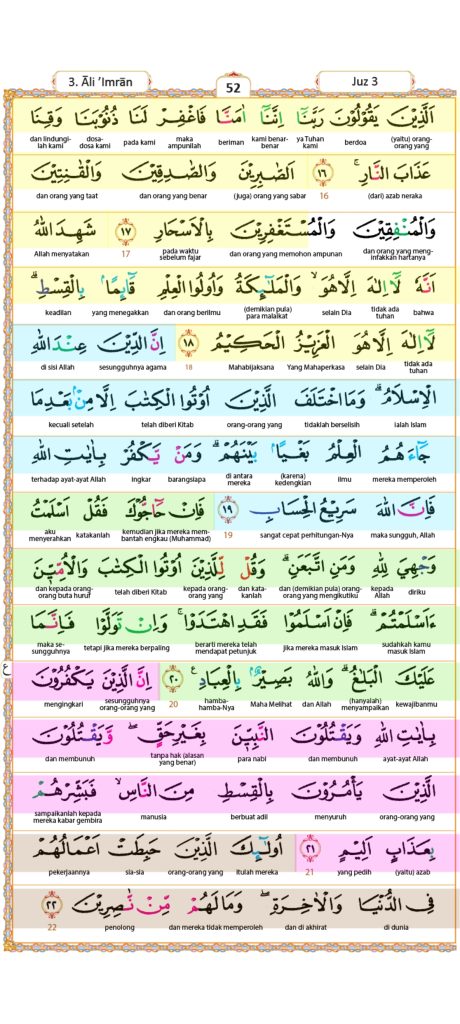 3. Āli ’Imrān
52
Juz 3
اَلَّذِيْنَ يَقُوْلُوْنَ رَبَّنَآ اِنَّنَآ اٰمَنَّا فَاغْفِرْ لَنَا ذُنُوْبَنَا وَقِنَا
(yaitu) orang-orang yang berdoa ya Tuhan kami kami benar-benar beriman maka ampunilah pada kami dosa-dosa kami dan lindungilah kami
عَذَابَ النَّارِۚ ١٦ اَلصّٰبِرِيْنَ وَالصّٰدِقِيْنَ وَالْقٰنِتِيْنَ
(dari) azab neraka 16 (juga) orang yang sabar dan orang yang benar dan orang yang taat
وَالْمُنْفِقِيْنَ وَالْمُسْتَغْفِرِيْنَ بِالْاَسْحَارِ ١٧ شَهِدَ اللّٰهُ
dan orang yang menginfakkan hartanya dan orang yang memohon ampunan pada waktu sebelum fajar 17 Allah menyatakan
اَنَّهٗ لَآ اِلٰهَ اِلَّا هُوَۙ وَالْمَلٰۤىِٕكَةُ وَاُولُوا الْعِلْمِ قَاۤىِٕمًاۢ بِالْقِسْطِۗ
bahwa tidak ada tuhan selain Dia (demikian pula) para malaikat dan orang berilmu yang menegakkan keadilan
لَآ اِلٰهَ اِلَّا هُوَ الْعَزِيْزُ الْحَكِيْمُ ١٨ اِنَّ الدِّيْنَ عِنْدَ اللّٰهِ
tidak ada tuhan selain Dia Yang Mahaperkasa Mahabijaksana 18 sesungguhnya agama di sisi Allah
الْاِسْلَامُۗ وَمَا اخْتَلَفَ الَّذِيْنَ اُوْتُوا الْكِتٰبَ اِلَّا مِنْۢ بَعْدِ مَا
ialah Islam tidaklah berselisih orang-orang yang telah diberi Kitab kecuali setelah
جَاۤءَهُمُ الْعِلْمُ بَغْيًاۢ بَيْنَهُمْۗ وَمَنْ يَّكْفُرْ بِاٰيٰتِ اللّٰهِ
mereka memperoleh ilmu (karena) kedengkian di antara mereka barangsiapa ingkar terhadap ayat-ayat Allah
فَاِنَّ اللّٰهَ سَرِيْعُ الْحِسَابِ ١٩ فَاِنْ حَاۤجُّوْكَ فَقُلْ اَسْلَمْتُ
maka sungguh, Allah sangat cepat perhitungan-Nya 19 kemudian jika mereka membantah engkau (Muhammad) katakanlah aku menyerahkan
وَجْهِيَ لِلّٰهِ وَمَنِ اتَّبَعَنِۗ وَقُلْ لِّلَّذِيْنَ اُوْتُوا الْكِتٰبَ وَالْاُمِّيّٖنَ
diriku kepada Allah dan (demikian pula) orang-orang yang mengikutiku dan katakanlah kepada orang-orang yang telah diberi Kitab dan kepada orang-orang buta huruf
ءَاَسْلَمْتُمْۗ فَاِنْ اَسْلَمُوْا فَقَدِ اهْتَدَوْاۚ وَاِنْ تَوَلَّوْا فَاِنَّمَا
sudahkah kamu masuk Islam jika mereka masuk Islam berarti mereka telah mendapat petunjuk tetapi jika mereka berpaling maka sesungguhnya
ع
عَلَيْكَ الْبَلٰغُۗ وَاللّٰهُ بَصِيْرٌۢ بِالْعِبَادِ ٢٠ اِنَّ الَّذِيْنَ يَكْفُرُوْنَ
kewajibanmu (hanyalah) menyampaikan dan Allah Maha Melihat hamba-hamba-Nya 20 sesungguhnya orang-orang yang mengingkari
بِاٰيٰتِ اللّٰهِ وَيَقْتُلُوْنَ النَّبِيّٖنَ بِغَيْرِ حَقٍّۖ وَّيَقْتُلُوْنَ
ayat-ayat Allah dan membunuh para nabi tanpa hak (alasan yang benar) dan membunuh
الَّذِيْنَ يَأْمُرُوْنَ بِالْقِسْطِ مِنَ النَّاسِۙ فَبَشِّرْهُمْ
orang-orang yang menyuruh berbuat adil manusia sampaikanlah kepada mereka kabar gembira
بِعَذَابٍ اَلِيْمٍ ٢١ اُولٰۤىِٕكَ الَّذِيْنَ حَبِطَتْ اَعْمَالُهُمْ
(yaitu) azab yang pedih 21 itulah mereka orang-orang yang sia-sia pekerjaannya
فِى الدُّنْيَا وَالْاٰخِرَةِۖ وَمَا لَهُمْ مِّنْ نّٰصِرِيْنَ ٢٢
di dunia dan di akhirat dan mereka tidak memperoleh penolong 22